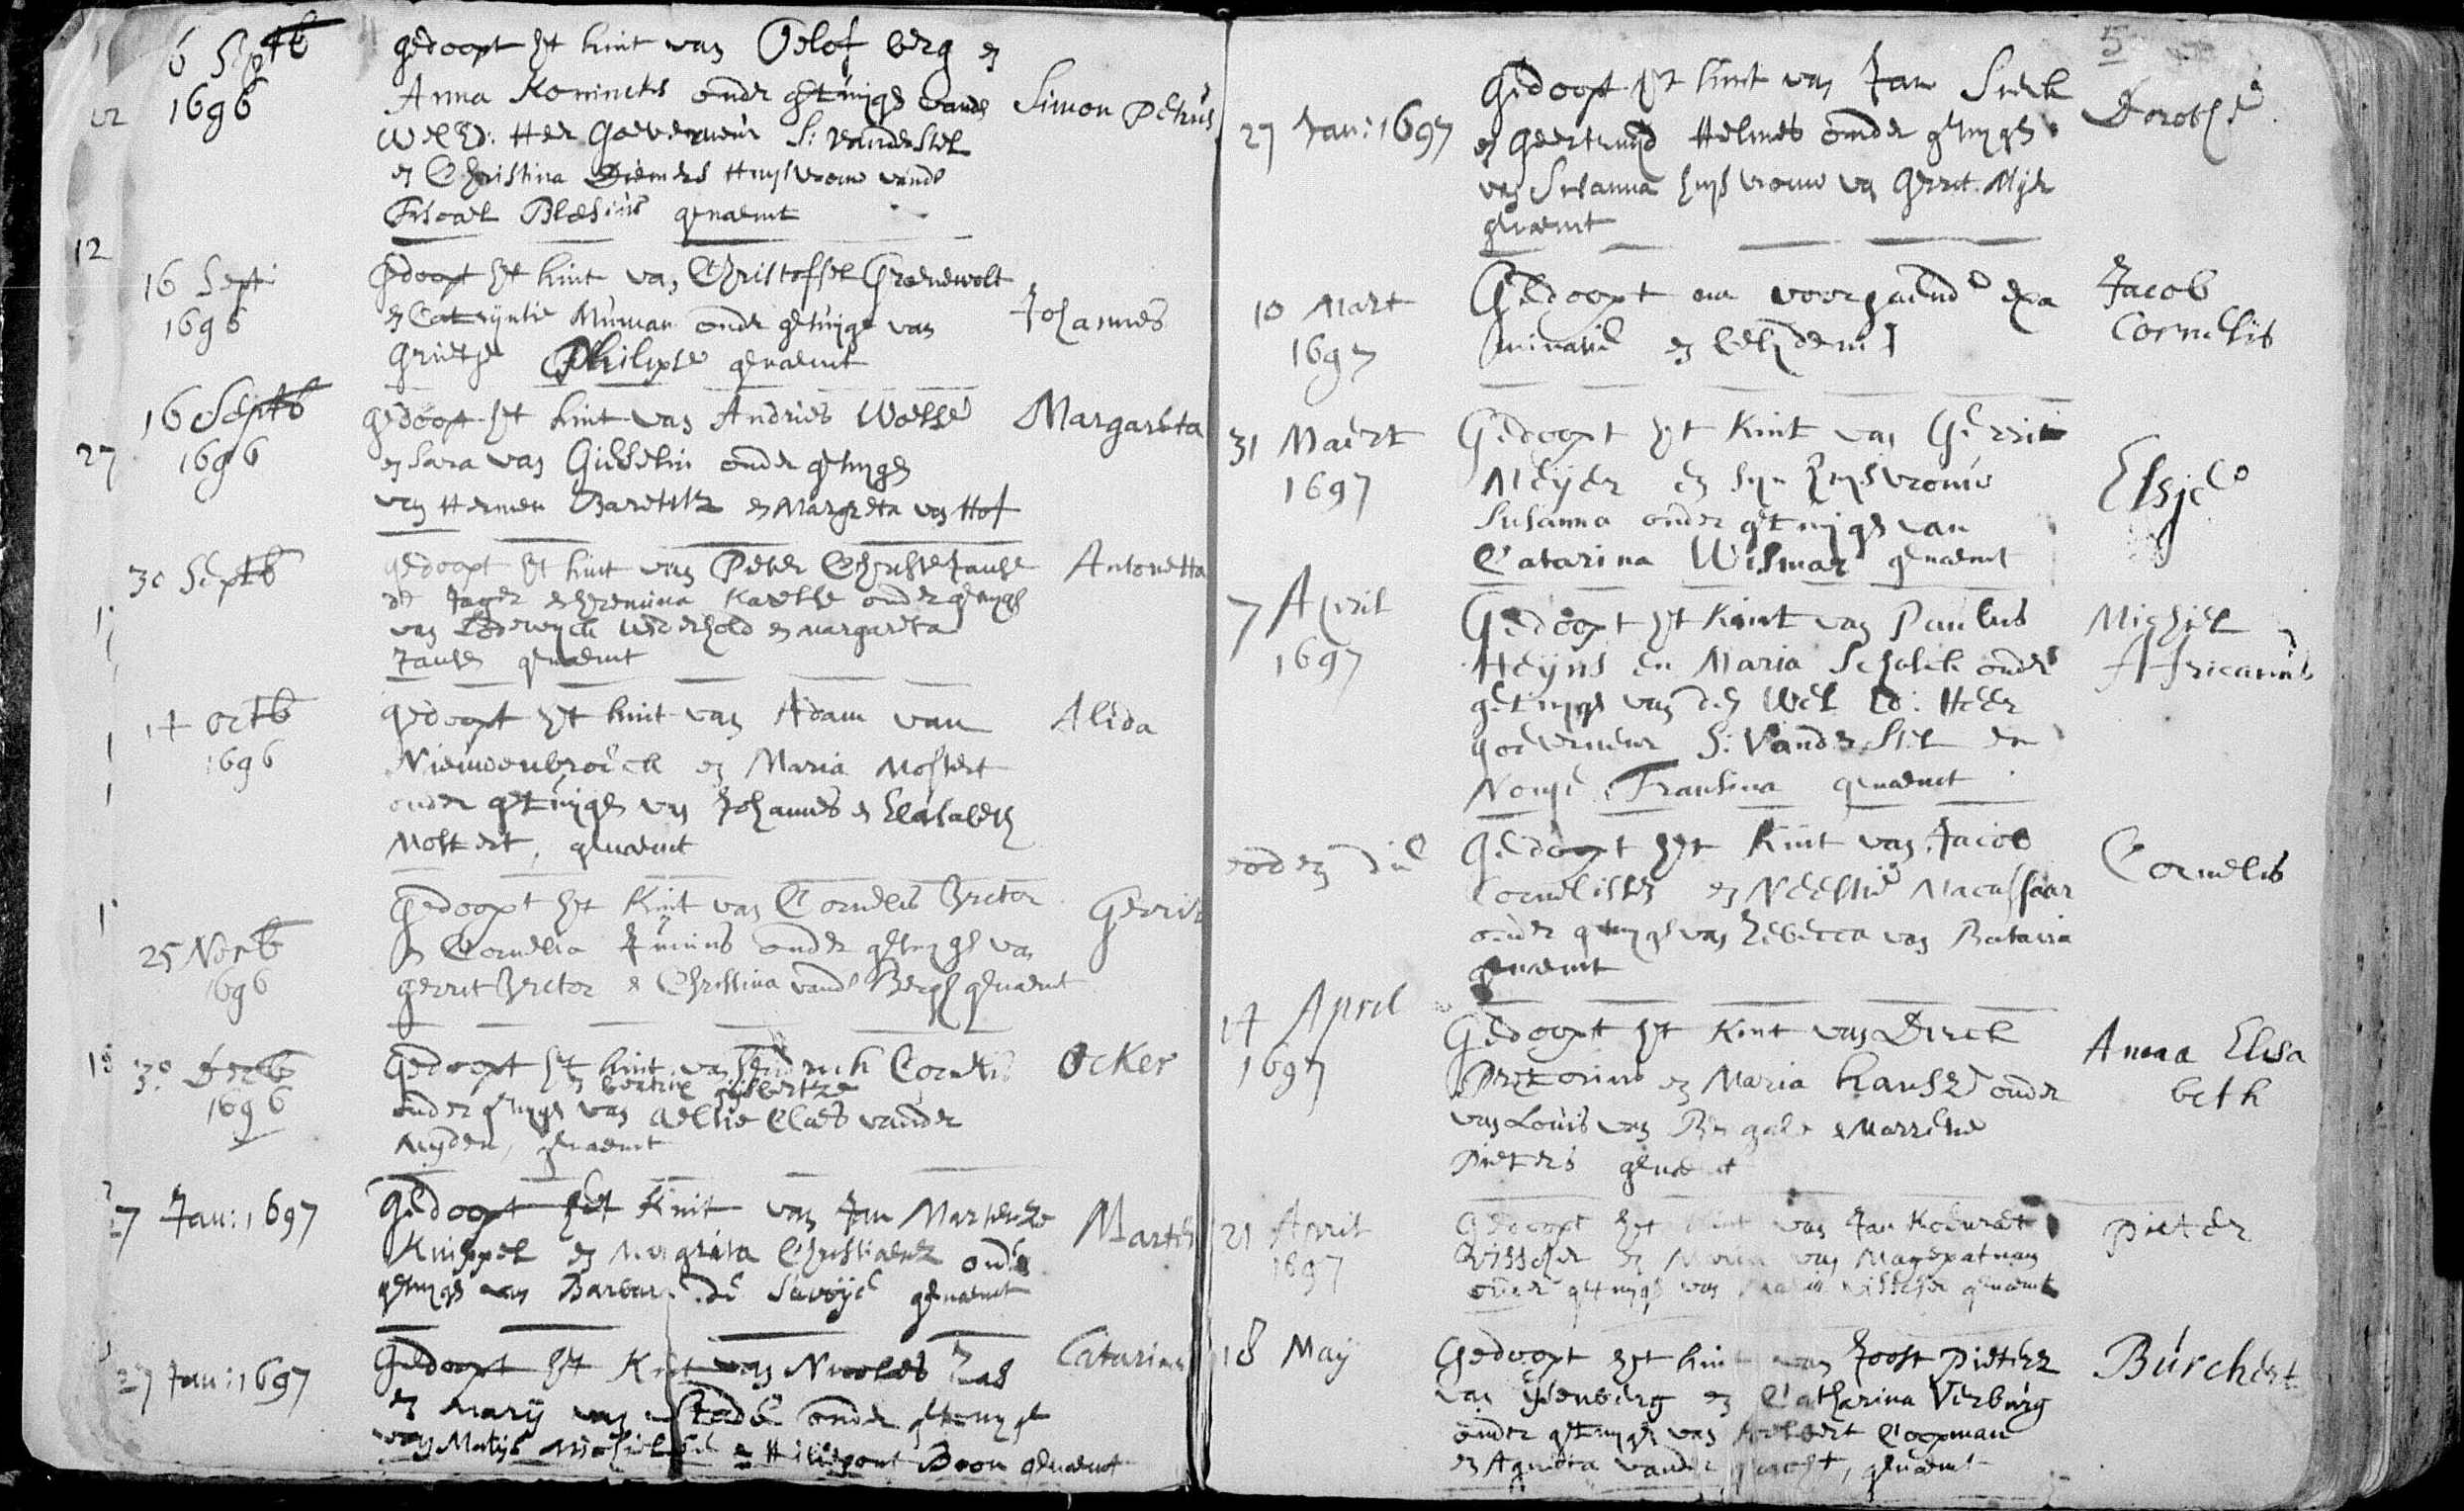 6 Septb
1696
gedoopt het kint van Oelof berg en
Anna Koninckx onder getuyge vande
Wel Ed: Heer Goeverneur S: vander Stel
en Christina Diemers Huysvrouw vande
Fiscael Blesius genaemt
Simon Petrus
12
16 Sept:
1696
Gedoopt het kint van Christoffel Groenewolt
en Catryntie Muman onder getuyge van
Grietje Philipse genaemt
Johannes
16 Septb
1696
27
gedoopt het kint van Andries Woelse
en Sara van Gieselin onder getuyge
van Hermen en Margreta van Hof
Margareta
30 Septb
gedoopt het kint van Pieter Jansse
de Jager en Hermina Karelse onder getuyge
van Lodewyck en margareta
Janse genaemt
Antonetta
14 octb
1696
gedoopt het kint van Adam van
Nieuwenbroeck en Maria Mostert
onder getuyge van Johannes en Elisabeth
Mostert, genaemt
Alida
25 Novb
1696
Gedoopt het Kint van Cornelis Bretor
en Cornelia Junius onder getuyge van
gerret Bretor en Christina vande Bergh genaemt
Gerrit
30 Decb
1696
Gedoopt het kint van Hendrick Cornelis
en beatrix gysbertze
onder getuyge van Aeltie Claes vander
genaemt
Ocker
27 Jan: 1697
Gedoopt het Kint van Jan Martensze
Knippel en Margreta Christiaensz onder
getuyge van Barbara de Savoye genaemt
27 Jan: 1697
Gedoopt het Kint van Nicolaes Ras
en Mary van Stade onder getuyge
van Matijs en Hillegont Boon genaemt
Catarina
5
27 Jan: 1697
Gedoopt het kint van Jan Sneek
en geertruyd Helmes onder getuyge
van Susanna huysvrouw van Gerrit Myer
genaemt
Dorothe
10 Mart
1697
Gedoopt na voorgaende exa
minatie en belydenis
Jacob
Cornelis
31 Maert
1697
Gedoopt het Kint van Gerrit
Meyer en syn huysvrouw
Susanna onder getuyge van
Catarina Wismar genaemt
Elsje
7 April
1697
Gedoopt het Kint van Paulus
Heyns en Maria Schalck onder
getuyge van den Wel Ed: Heer
goeverneur S: Vander Stel en
Fransina genaemt
Michiel
Africanus
eoden die
Gedoopt het Kint van Jacob
Cornelissen en Neeltie Macassaar
onder getuyge van Rebecca van Batavia
genaemt
Cornelis
14 April
1697
Gedoopt het Kint van Dirck
Pretorius en Maria hansze onder
van Louis van Bengale en Marritie
Pieters genaemt
Anna Elisa
beth
21 April
1697
Gedoopt het kint van Jan Koenraet
Visscher en Maria van Magepatnam
onder getuyge van Maria visscher genaemt
Pieter
18 May
Gedoopt het kint van Joost Pietersz
van Ysenberg en Catharina Verburg
onder getuyge van Coopman
en Agnieta vander genaemt
Burchert